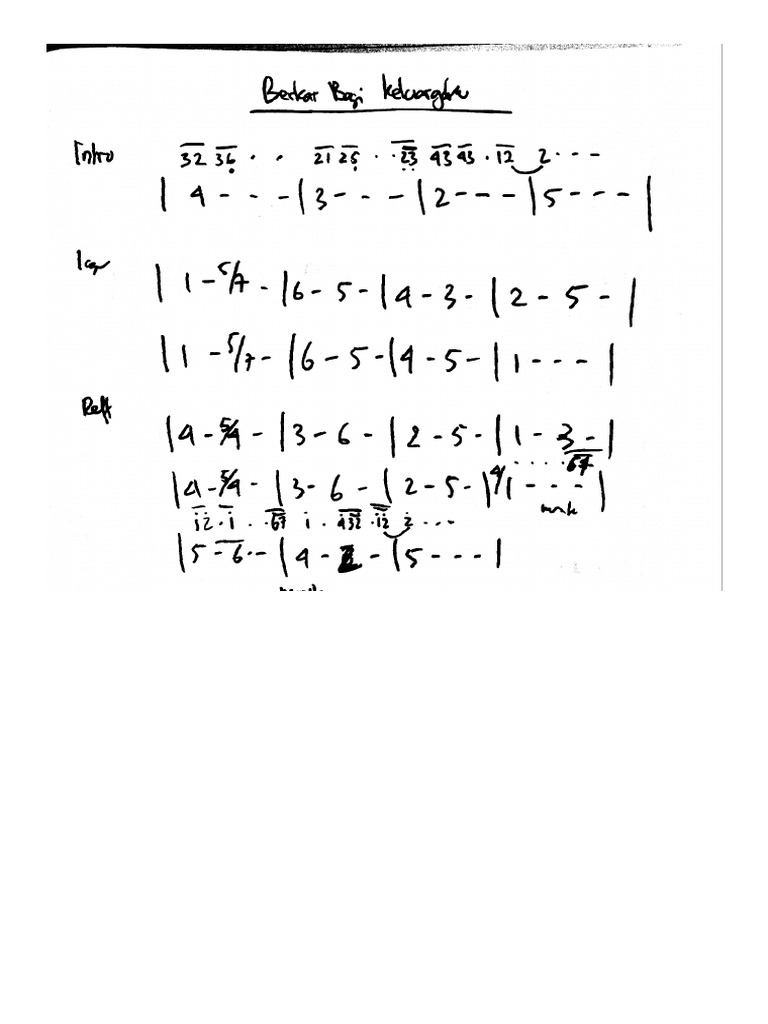 Berkat Bagi Keluargaku
Intro 32 36 . . 21 25 . . 23 43 43 . 12 2 . . .
| 4 - - - | 3 - - - | 2 - - - | 5 - - - |
| 1 - 5/7 - | 6 - 5 - | 4 - 3 - | 2 - 5 - |
| 1 - 5/7 - | 6 - 5 - | 4 - 5 - | 1 - - - |
Reff | 4 - 5/4 - | 3 - 6 - | 2 - 5 - | 1 - 3 - |
. . . . . 67
| 4 - 5/4 - | 3 - 6 - | 2 - 5 - | 4/1 - - - |
12 . 1 . . 67 1 . 432 . 12 2 . . .
| 5 - 6 - - | 4 - - | 5 - - - |